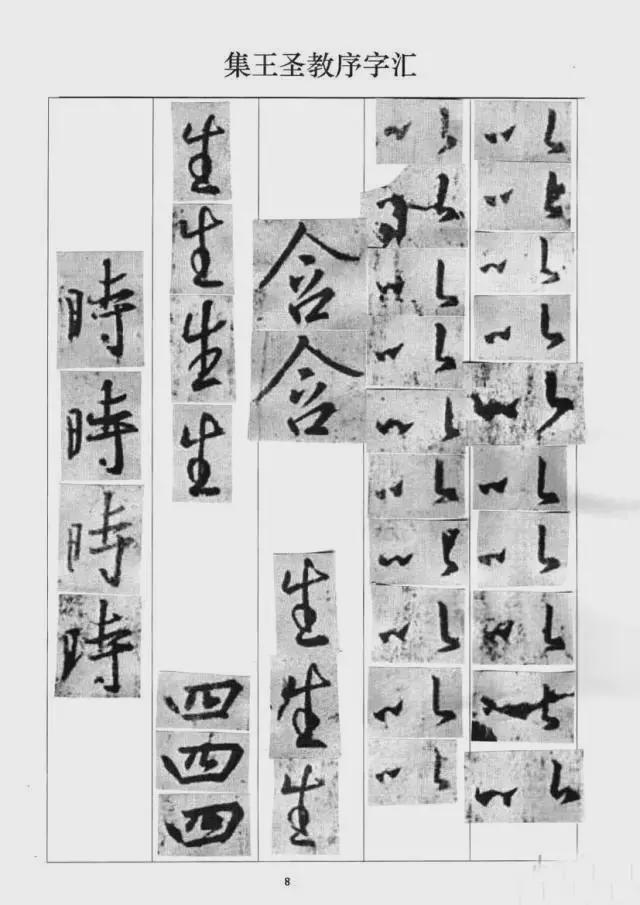 集王圣教序字汇
以以以以以以以以以以
以以以以以以以以以以
含含生生生
生生生生四四四
時時時時
8